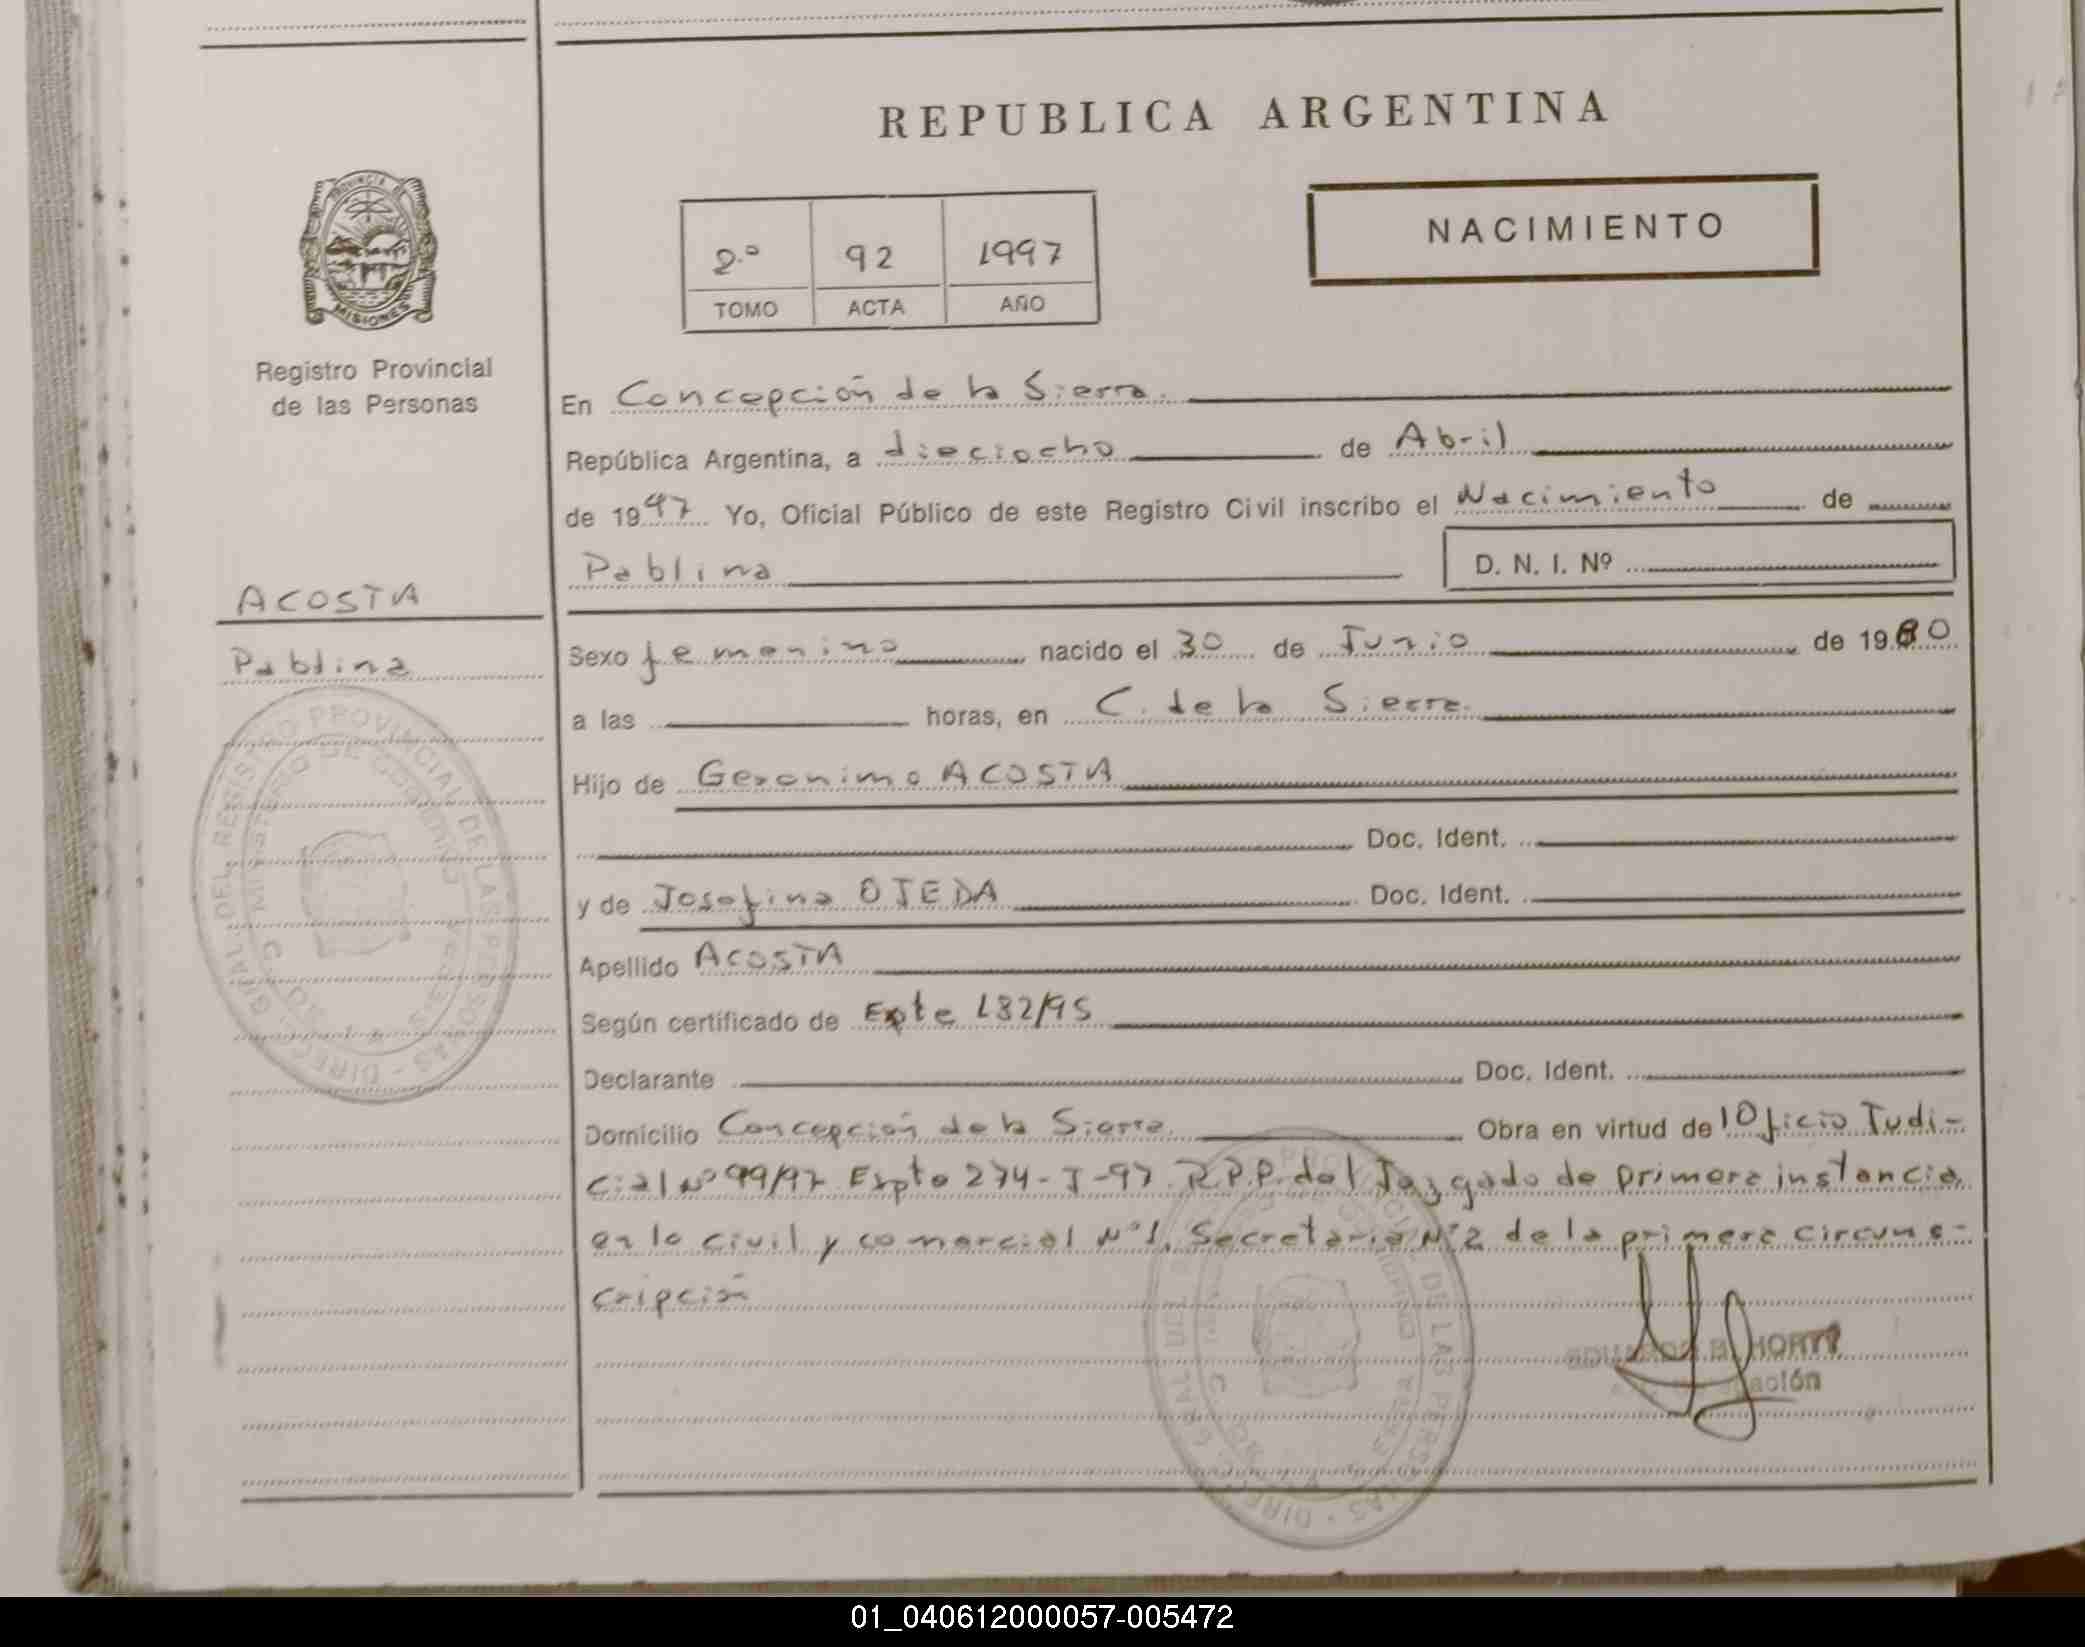 REPUBLICA ARGENTINA
NACIMIENTO
2.º 92 1997
TOMO ACTA AÑO
PROVINCIA DE
MISIONES
Registro Provincial
de las Personas
En Concepción de la Sierra.
República Argentina, a dieciocho de Abril
de 1997 Yo, Oficial Público de este Registro Civil inscribo el Nacimiento de
Pablina D. N. I. Nº
ACOSTA
Pablina
Sexo femenino nacido el 30 de Junio de 1960
a las horas, en C. de la Sierra.
Hijo de Geronimo ACOSTA
Doc. Ident.
y de Josefina OJEDA Doc. Ident.
Apellido ACOSTA
Según certificado de Expte 182/95
Declarante Doc. Ident.
Domicilio Concepción de la Sierra. Obra en virtud de Oficio Judi-
cial Nº 99/97 Expte 274-J-97 R.P.P. del Juzgado de primera instancia
en lo civil y comercial Nº1, Secretaria Nº2 de la primera circuns-
cripción
EDUARDO B. HORTT
01_040612000057-005472